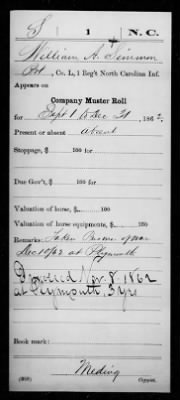 S 1 N.C.
William A. Simmon
Pvt, Co. I, 1 Reg't North Carolina Inf.
Appears on
Company Muster Roll
for Sept 1 to Dec 31, 1862.
Present or absent absent
Stoppage, $ 100 for
Due Gov't, $ 100 for
Valuation of horse, $ 100
Valuation of horse equipments, $ 100
Remarks: Taken Prisoner of war
Dec 10/62 at Plymouth
Enrolled Nov. 8, 1862
at Plymouth, 3 yrs
Book mark:
Meding
Copyist.